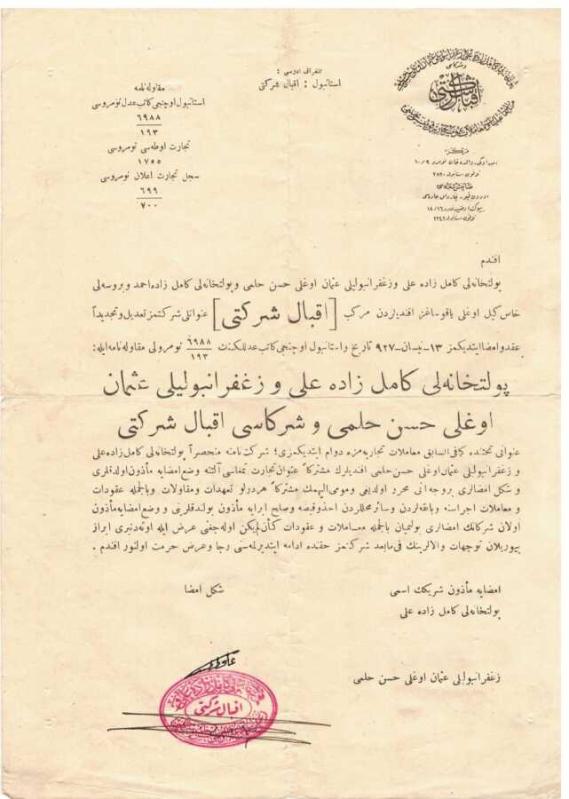 تلغراف آدرسی :
استانبول : اقبال شركتی
مقاوله نامه
استانبول اوچنجی كاتب عدل نومروسی
٦٩٨٨
١٩٣
تجارت اوطه سی نومروسی
١٧٥٥
سجل تجارت اعلان نومروسی
٦٩٩
٧٠٠
اقبال شركتی
مركز :
افندم
پولتخانه لی كامل زاده علی و زغفرانبولیلی عثمان اوغلی حسن حلمی و پولتخانه لی كامل زاده احمد و بروسه لی
خاص كیل اوغلی یاقو ساغز افندیلردن مركب [ اقبال شركتی ] عنوانلی شركتمز تعدیل و تجدیداً
عقد و امضا ایتدیكمز ١٣ نیسان ٩٢٧ تاریخ و استانبول اوچنجی كاتب عدللكنك ٦٩٨٨/١٩٣ نومرولی مقاوله نامه ایله :
پولتخانه لی كامل زاده علی و زغفرانبولیلی عثمان
اوغلی حسن حلمی و شركاسی اقبال شركتی
عنوانی تحتنده كمافی السابق معاملات تجاریه مزه دوام ایتدیكمزی ؛ شركت نامنه منحصراً پولتخانه لی كامل زاده علی
و زغفرانبولیلی عثمان اوغلی حسن حلمی افندیلرك مشتركاً عنوان تجارت تمغاسی آلتنه وضع امضایه مأذون اولدقلری
و شكل امضالری بروجه آتی محرر اولدیغی و مومی الیهمك مشتركاً هر درلو تعهدات و مقاولات و بالجمله عقودات
و معاملات اجراسنه و بانقه لردن و سائر محللردن اخذ و قبضه و صلح و ابرایه مأذون بولندقلرینی و وضع امضایه مأذون
اولان شركانك امضالری بولنمیان بالجمله معاملات و عقودات كأن لم یكن اوله جغنی عرض ایله اوته دنبری ابراز
بیوریلان توجهات والالرینك فی مابعد شركتمز حقنده ادامه ایتدیرلمه سنی رجا و عرض حرمت اولنور افندم .
امضایه مأذون شریكك اسمی
شكل امضا
پولتخانه لی كامل زاده علی
زغفرانبولیلی عثمان اوغلی حسن حلمی
اقبال شركتی